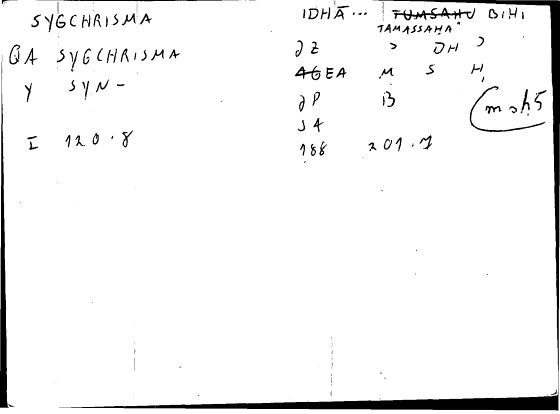 SYGCHRISMA
QA SYGCHRISMA
Y SYN-
I 120.8
IDHĀ... TUMSAHU BIHI
TAMASSAHA
JZ DH
AGEA M S H
JP B
SA
188 201.1